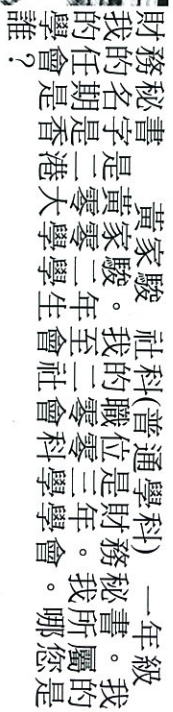 財務秘書　黃家駿　社科(普通學科)　一年級
我的名字是黃家駿。我的職位是財務秘書。我
的任期是二零零二年至二零零三年。我所屬的
學會是香港大學學生會社會科學學會。哪您是
誰？